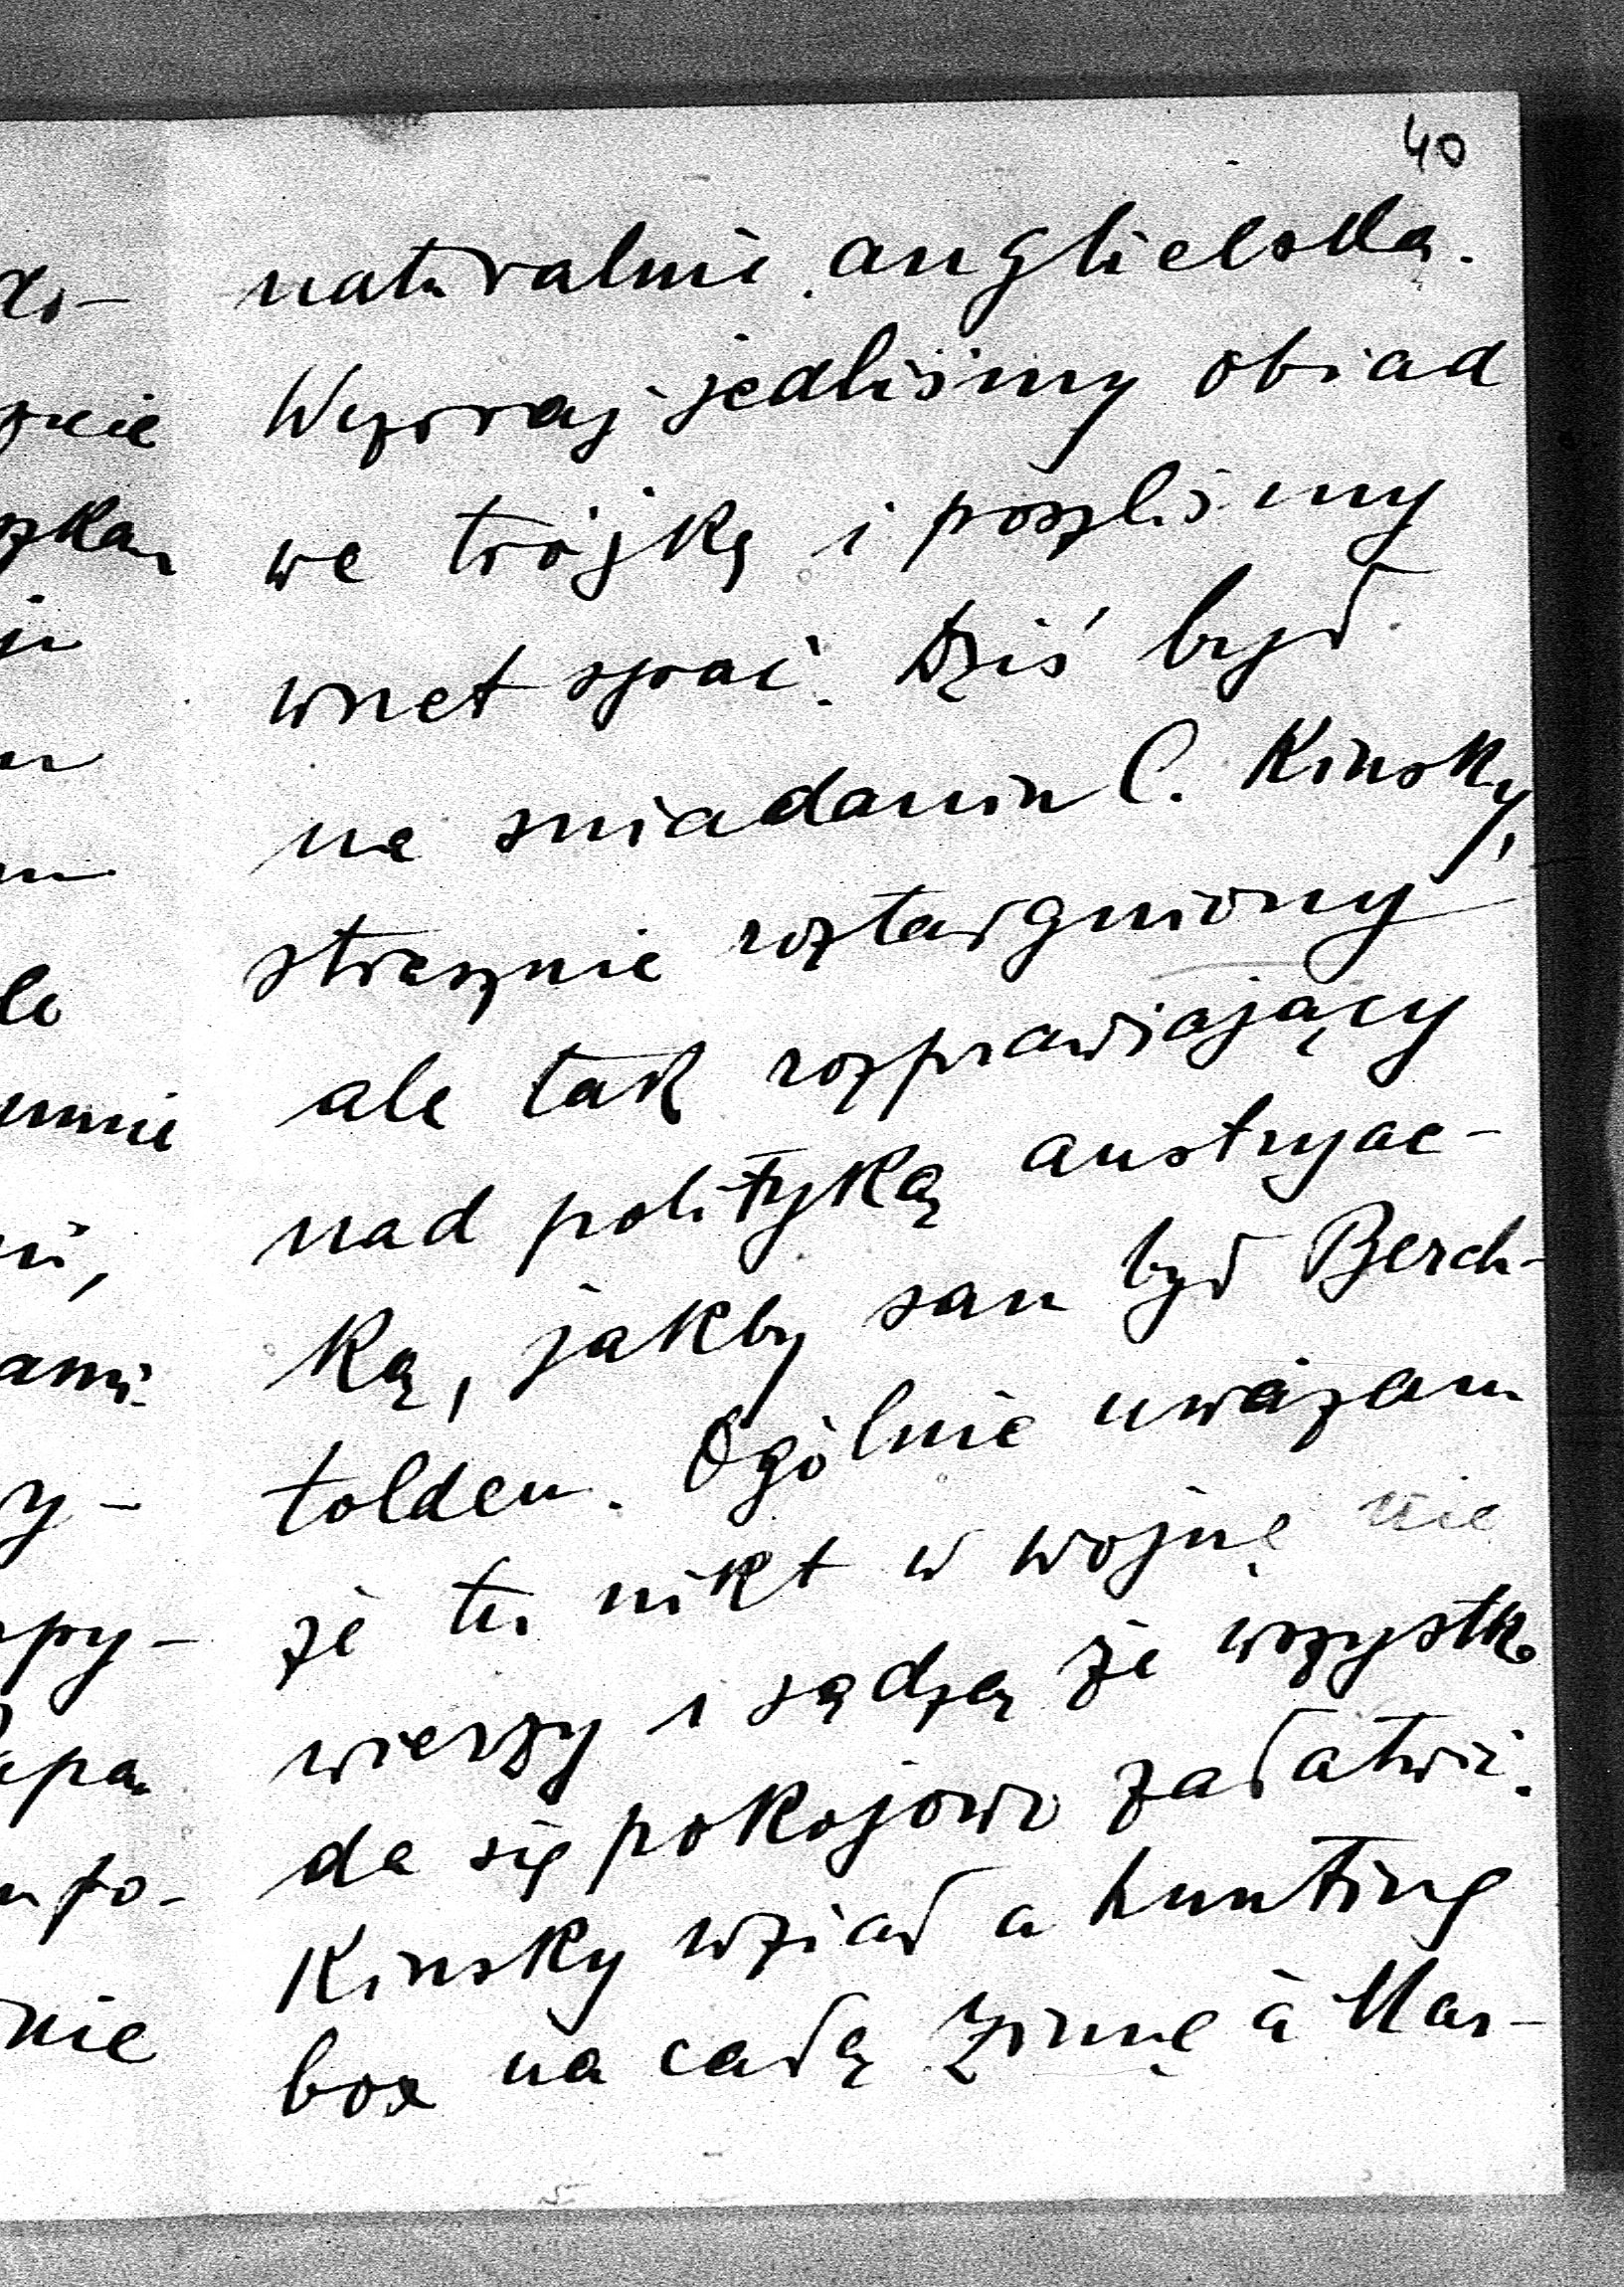 40
naturalnie angielską.
Wczoraj jedliśmy obiad
we trójkę i poszliśmy
wnet spać. Dziś był
na sniadaniu C. Kinsky,
strasznie roztargniony
ale tak rozprawiający
nad polityką austryac-
ką, jakby sam był Berch-
toldem. Ogólnie uważam
że tu nikt w wojnę nie
wierzy i sądzą że wszystko
da się pokojowo załatwić.
Kinsky wziął a hunting
box na całą zimę à Mar-